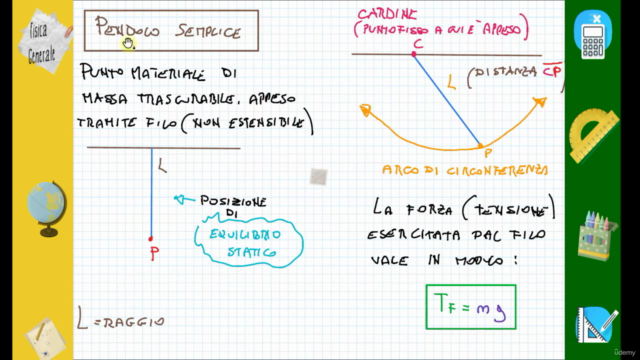 Fisica
Generale
PENDOLO SEMPLICE
PUNTO MATERIALE DI
MASSA TRASCURABILE, APPESO
TRAMITE FILO (NON ESTENSIBILE)
L
POSIZIONE
DI
EQUILIBRIO
STATICO
P
L = RAGGIO
CARDINE
(PUNTO FISSO A CUI È APPESO)
C
L (DISTANZA CP)
P
ARCO DI CIRCONFERENZA
LA FORZA (TENSIONE)
ESERCITATA DAL FILO
VALE IN MODULO:
TF = mg
udemy